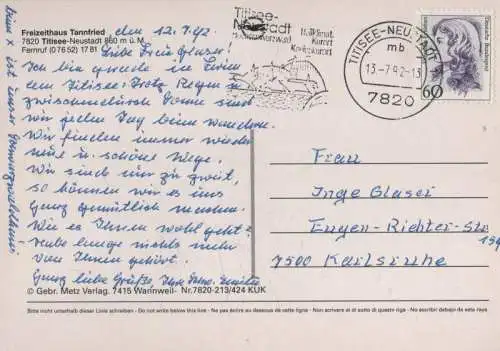 Freizeithaus Tannfried
7820 Titisee-Neustadt 860 m ü. M.
Fernruf (07652) 1781
den 12.7.92
Liebe Frau Glaser!
Ich bin gerade in
dem Titisee. Trotz Regen u.
zwischendurch Sonne sind
wir jeden Tag beim Wandern.
Wir finden immer wieder
neue u. schöne Wege.
Wir sind nur zu zweit,
so können wir es uns
ganz gemütlich machen.
Wie es Ihnen wohl geht?
lange nichts mehr
von Ihnen gehört.
Ganz liebe Grüße, Ihre
ist unser
© Gebr. Metz Verlag. 7415 Wannweil- Nr.7820-213/424 KUK
Titisee-
Neustadt
Hochschwarzwald
Heilklimat.
Kurort
Kneippkurort
TITISEE-NEUSTADT 1
mb
13.-7.92-13
7820
Deutsche Bundespost
60
Frau
Inge Glaser
Eugen-Richter-Str
7500 Karlsruhe
Bitte nicht unterhalb dieser Linie schreiben - Do not write below this line - Ne pas écrire au dessous de cette ligne - Non scrivere al di sotto di questa riga - No escribir debajo de esta raya